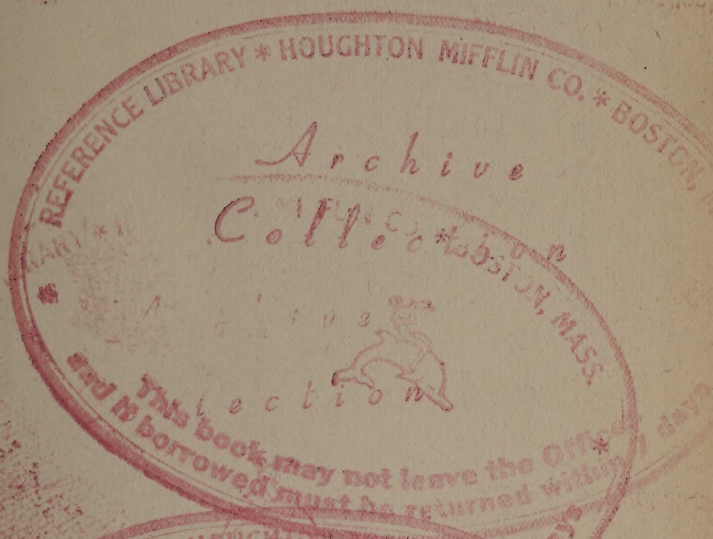 REFERENCE LIBRARY * HOUGHTON MIFFLIN CO. * BOSTON,
Archive
Collection
* BOSTON, MASS.
This book may not leave the Office
and if borrowed must be returned within 7 days